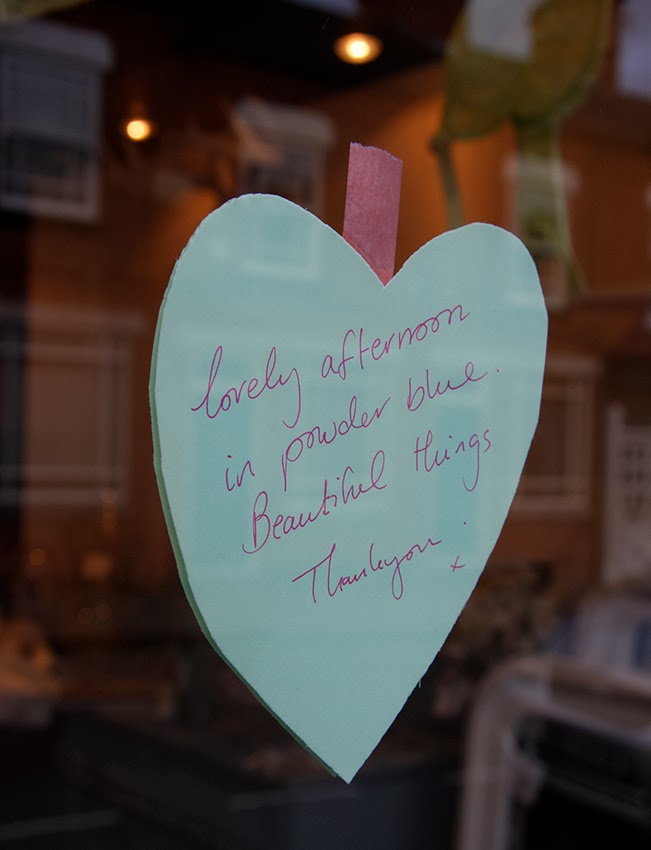 lovely afternoon
in powder blue.
Beautiful things
Thankyou.
x